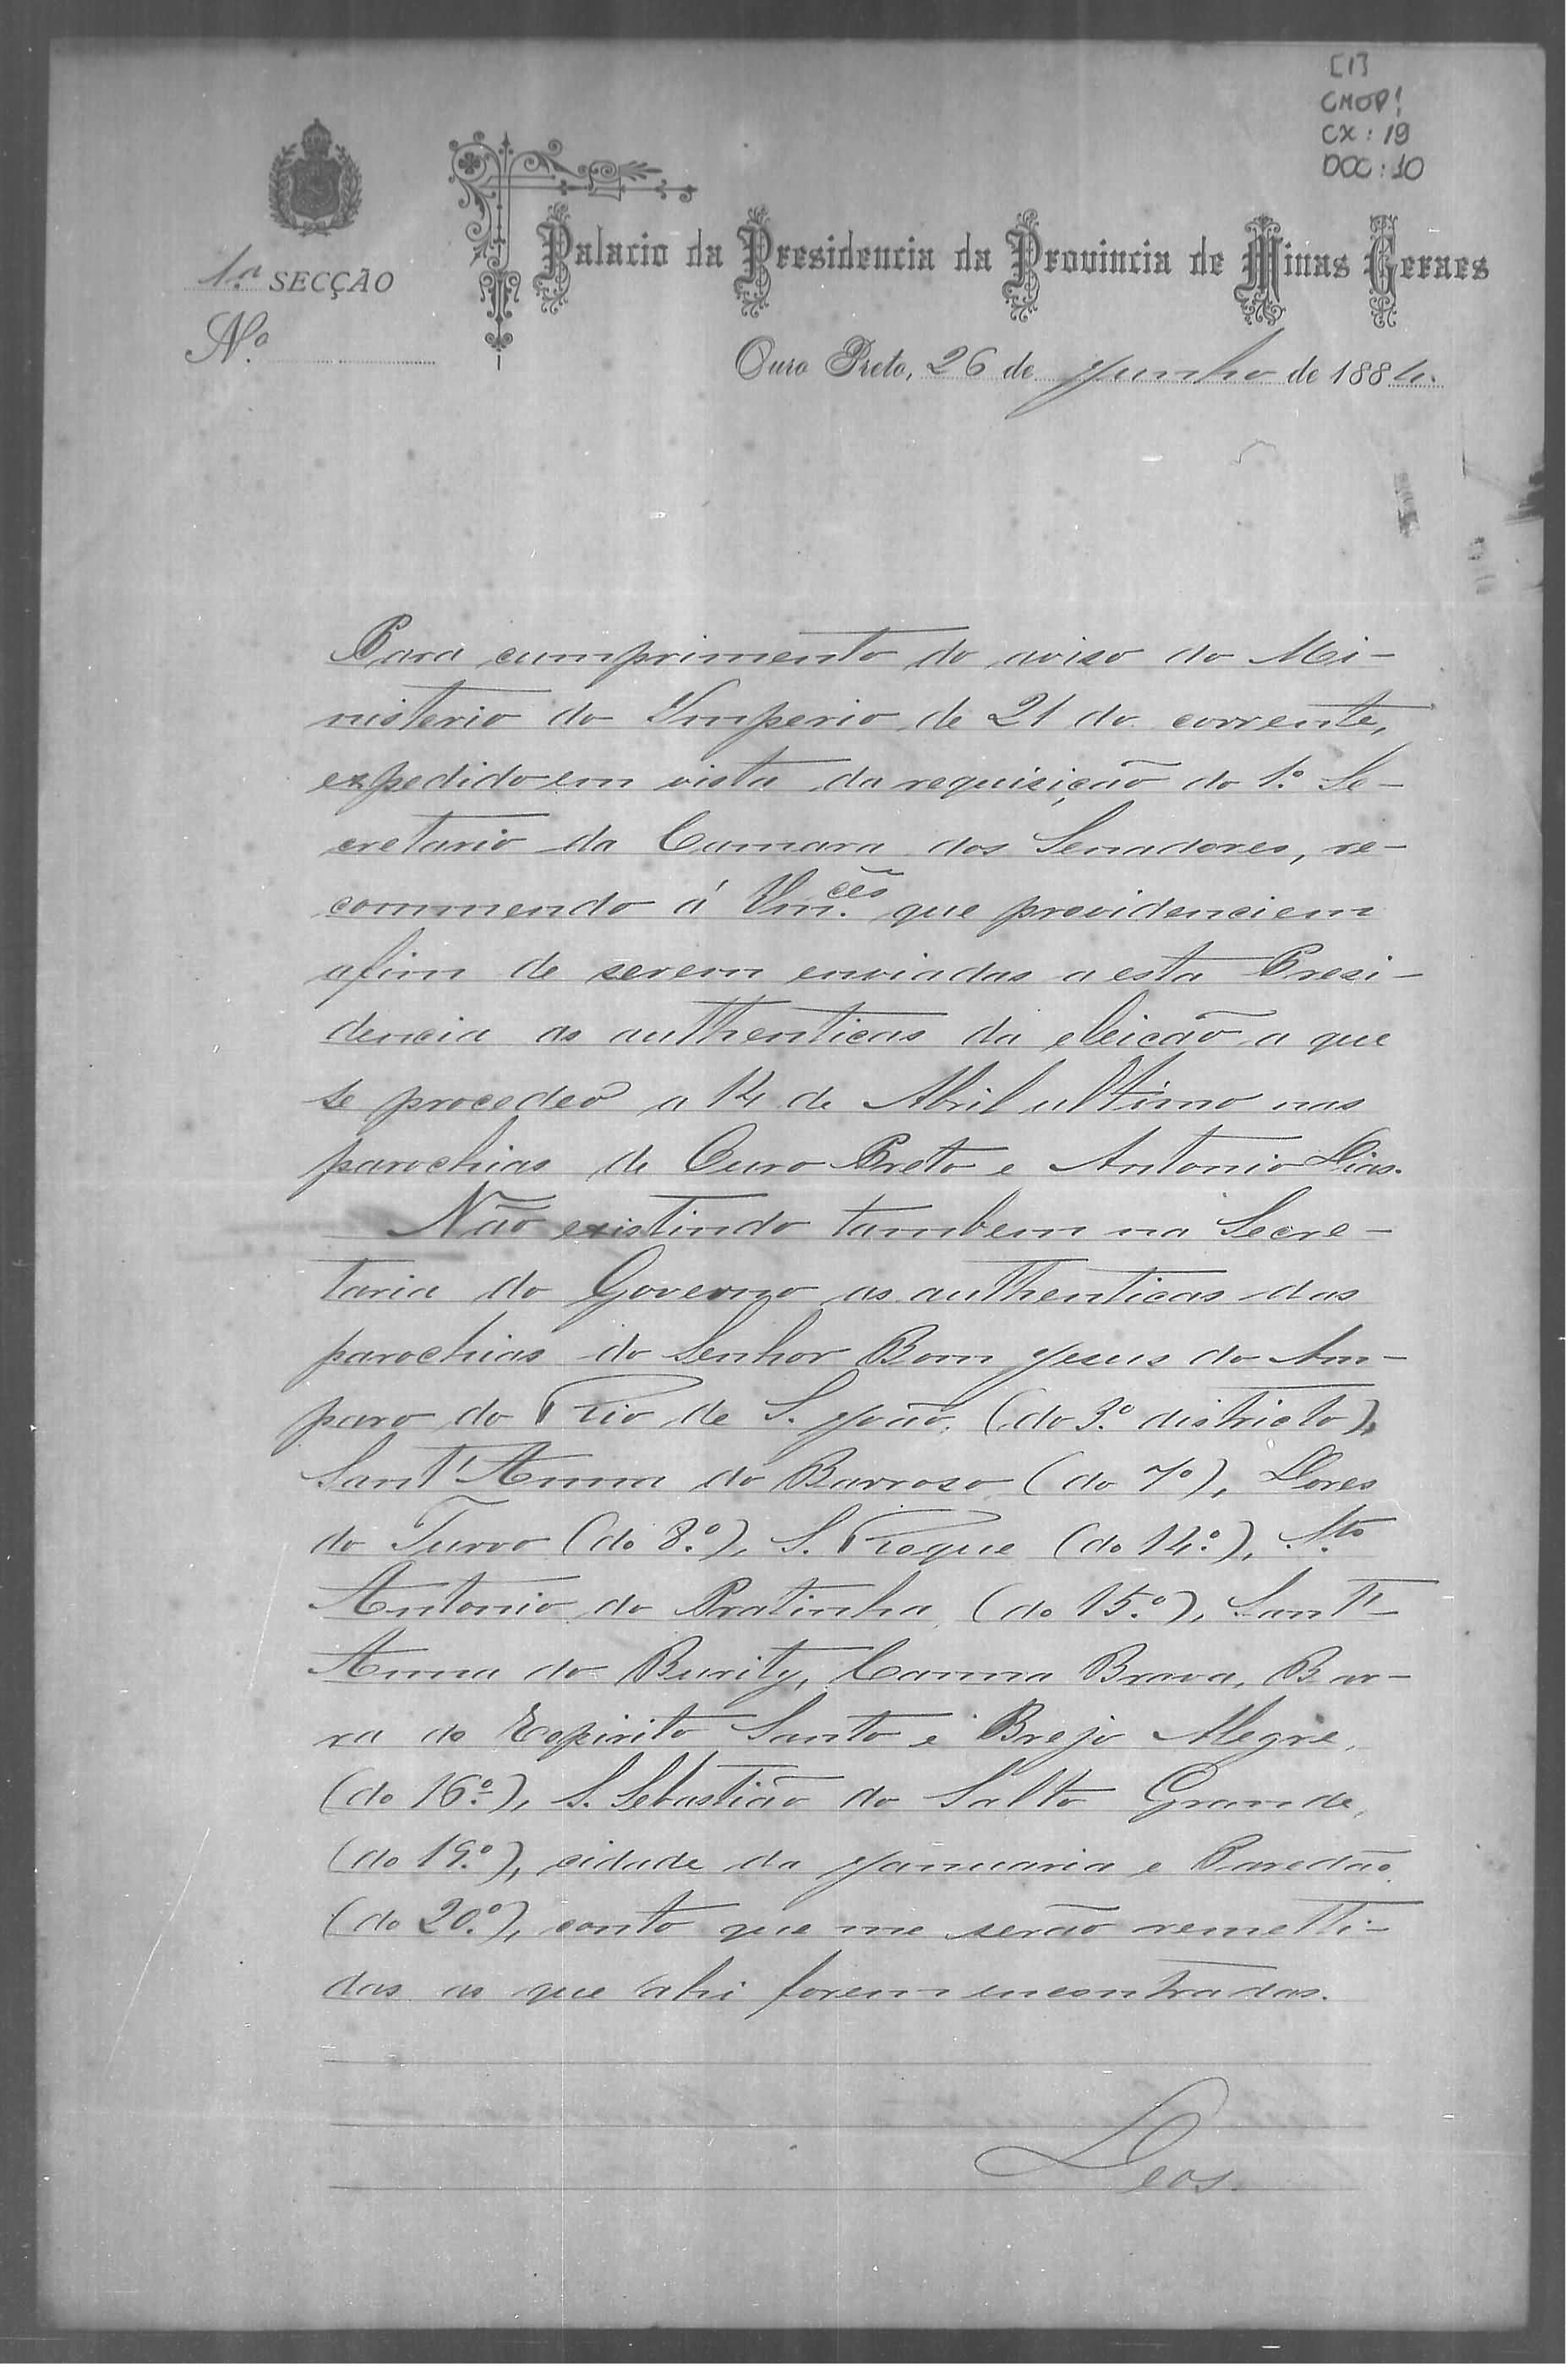 [1]
CMOP!
CX: 19
DOC: 10
Palacio da Presidencia da Provincia de Minas Geraes
1.a SECÇÃO
N.o
Ouro Preto, 26 de Junho de 1884.
Para cumprimento do aviso do Mi-
nisterio do Imperio de 21 do corrente,
expedido em vista da requisição do 1.o Se-
cretario da Camara dos Senadores, re-
commendo á Vm.ces que providenciem
afim de serem enviadas a esta Presi-
dencia as authenticas da eleição a que
se procedeo a 14 de Abril ultimo nas
parochias de Ouro Preto e Antonio Dias.
Não existindo tambem na Secre-
taria do Governo as authenticas das
parochias do Senhor Bom Jesus do Am-
paro do Rio de S. João, (do 3.o districto),
Sant'Anna do Barroso (do 7o), Dores
do Turvo (do 8.o), S. Roque (do 14.o), S.to
Antonio do Pratinha (do 15.o), Sant'-
Anna do Burity, Canna Brava, Bar-
ra do Espirito Santo e Brejo Alegre,
(do 16.o), S. Sebastião do Salto Grande,
(do 19.o), cidade da Januaria e Paredão
(do 20.o), conto que me serão remetti-
das as que ahi forem encontradas.